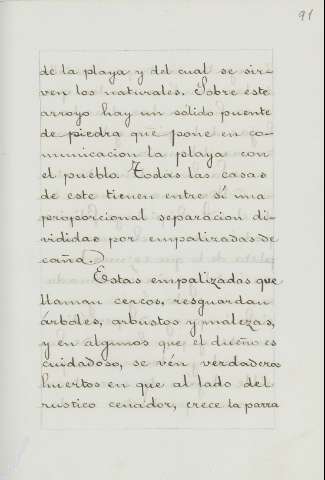 91
de la playa y del cual se sir-
ven los naturales. Sobre este
arroyo hay un sólido puente
de piedra que pone en co-
municacion la playa con
el pueblo. Todas las casas
de este tienen entre sí una
proporcional separacion di-
vididas por empalizadas de
caña.
Estas empalizadas que
llaman cercos, resguardan
árboles, arbustos y malezas,
y en algunos que el dueño es
cuidadoso, se vén verdaderos
huertos en que al lado del
rustico cenador, crece la parra